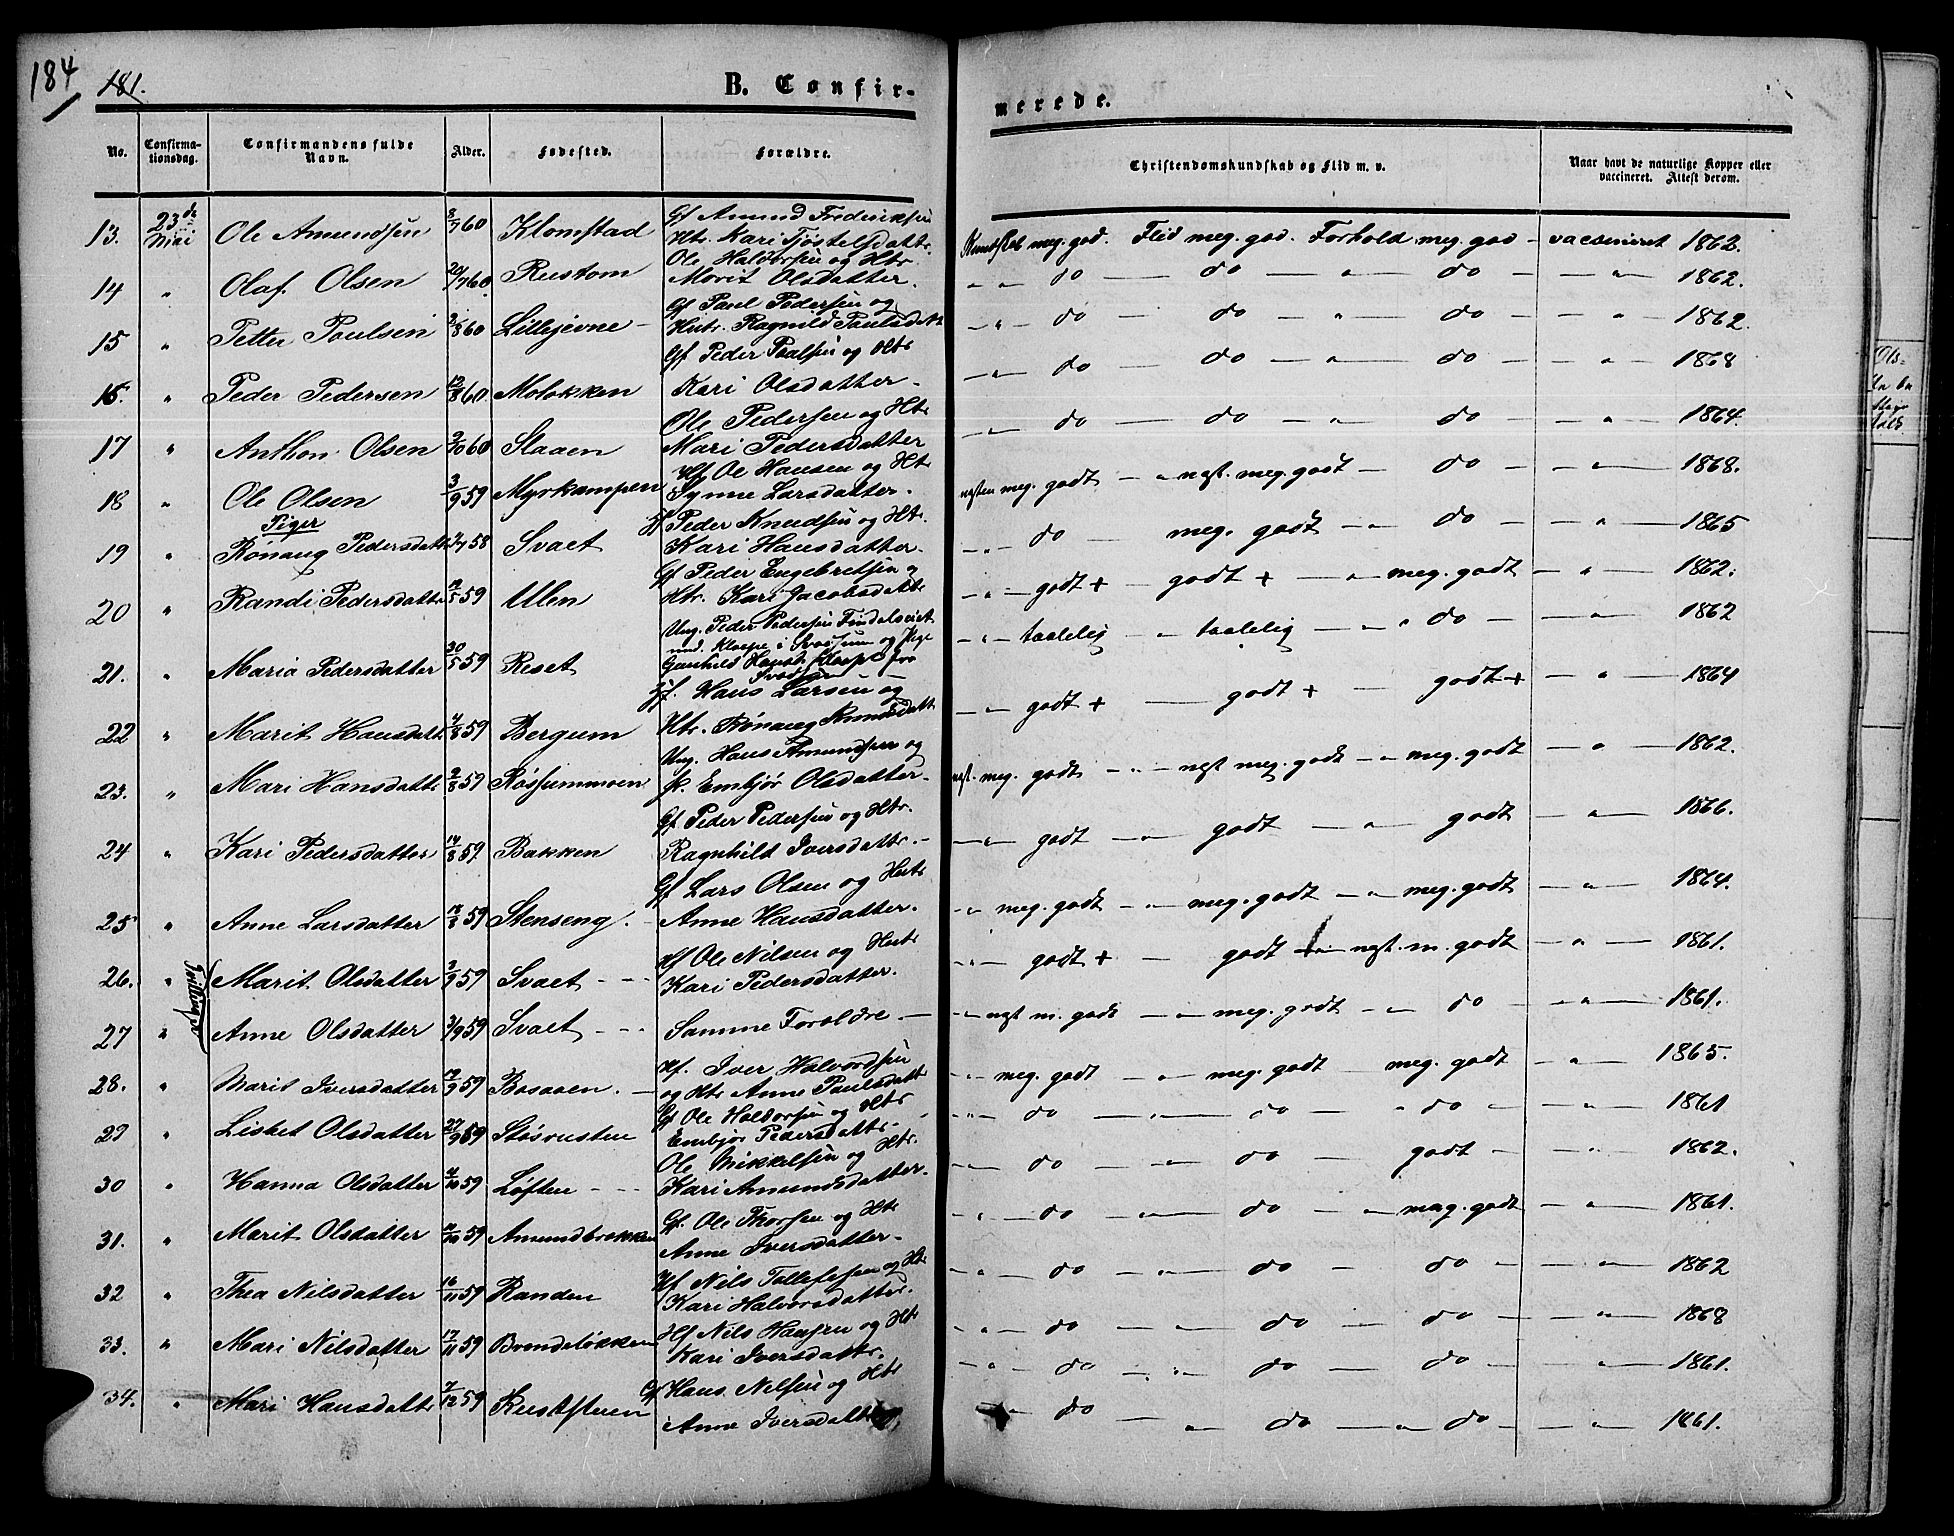 184
181.
B. Confir-
merede.
No.
Confirma-
tionsdag.
Confirmandens fulde
Navn.
Alder.
Fødested.
Forældre.
Christendomskundskab og Flid m. v.
Naar havt de naturlige Kopper eller
vaccineret. Attest derom.
13. 23de Mai Ole Amundsen 3/7 60 Klomstad Gf Amund Frederiksen
Htr. Kari Tjøstelsdattr. Kundskab meg. god. Flid meg. god. Forhold meg. god - vaccineret 1862.
14 " Olaf Olsen 20/7 60 Rustom Ole Halvorsen og Htr.
Marit Olsdatter. - " - do - do - " - do - - " - 1862.
15 " Petter Poulsen 2/8 60 Lillejevne - Gf Paul Pedersen og
Hustr. Ragnild Paulsdatt - " - do - do - " - do - - " - 1862.
16. " Peder Pedersen 12/8 60 Molokken Gf Peder Poalsen og Htr
Kari Olsdatter - - " - do - do - " - do - - " - 1868
17 " Anthon Olsen 2/10 60 Slaaen Ole Pedersen og Htr
Mari Pedersdatter - " - do - do - " - do - - " - 1864.
18 " Ole Olsen 3/9 59 Myrkampen Hf Ole Hansen og Htr
Synne Larsdatter. næsten meg. godt - " næst. meg. godt - do - - " - 1868.
Piger
19 " Rønaug Pedersdatt 58 Svaet Hf Peder Knudsen og Htr.
Kari Hansdatter - - " - do - meg. godt - " - do - - " - 1865
20 " Randi Pedersdattr 12/5 59 Ulen Gf Peder Engebretsen og
Htr. Kari Jacobsdattr - " - godt + - godt + - " - meg. godt - " - 1862.
21. " Maria Pedersdatter 30/5 59 Reset Ung. Peder Pedersen
og Pige
Gunhild - " - taalelig - " taalelig - " do - - " - 1862
22 " Marit Hansdatt 4/8 59 Bergum Hf. Hans Larsen og
Htr. Rønaug - " - godt + - godt + - godt + - " - 1864
23. " Mari Hansdattr 2/8 59 Røssummoen Ung. Hans Amundsen og
p. Embjør Olsdatter - næst. meg. godt - " - næst meg. godt - " meg. godt - " - 1862.
24 " Kari Pedersdatter 14/8 59. Bakken Gf Peder Pedersen og Htr.
Ragnhild Iversdattr. - - " - godt - " - godt - " - godt - " - 1866.
25 " Anne Larsdatter 18/8 59 Stenseng. - Gf Lars Olsen og Hustr
Anne Hansdatter. - " meg. godt - " - meg. godt - " - meg. godt - " - 1864.
Tvillinger
26. " Marit Olsdatter 2/9 59 Svaet - - Hf Ole Nilsen og Hustr
Kari Pedersdatter. - " - godt + - godt - næst. m. godt - " - 1861.
27 " Anne Olsdatter 2/9 59 Svaet - - Samme Foroldre - - " - næst m. godt - " - meg. godt - " - do - " - 1861.
28. " Marit Iversdatter 59 Bosaaen. - Hf. Iver Halvordsen
og Htr Anne Paulsdatt - " meg. godt - " - meg. godt - meg. godt - " - 1865.
29 " Lisbet Olsdatter 27/9 59 Støsrusten Gf Ole Holdorsen og Htr
Embjør Pedersdattr. - " - do - " - do - " do - - " - 1861
30 " Hanna Olsdatter 4/10 59 Løften - - - Ole Mikkelsen og Htr.
Kari Amundsdatter. - " - do - " - do - godt - - " - 1862.
31. " Marit Olsdatter 11/10 59 Amundbrokken Gf. Ole Thorsen og Htr
Anne Iversdatter - - " - do - " - do - " - meg. godt - " - 1861.
32 " Thea Nilsdatter 16/11 59 Randen Hf Nils Tollefsen og Htr
Kari Halvorsdatter. - " - do - " - do - do - - " - 1862
33. " Mari Nilsdatter 17/11 59 Brændeløkken Hf Nils Hansen og Htr
Kari Iversdattr. - " - do - do - do - - " - 1868
- " - do - " - do - do - - " - 1861.
34. " Mari Hansdattr 7/12 59 Rustestuen Gf Hans Nilsen og Htr
Anne Iversdatter - " - do - " - do - " - do - - " - 1861.